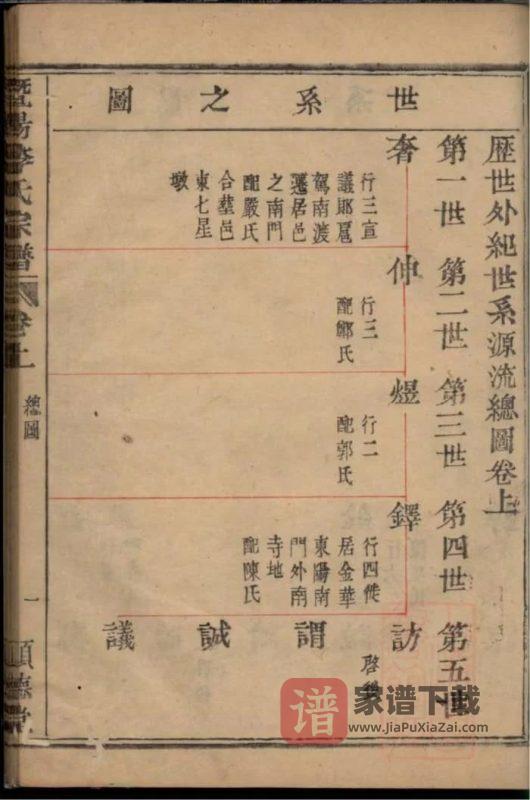 世系之圖
歷世外紀世系源流總圖卷上
第一世 第二世 第三世 第四世 第五世
奢
行三宣
議郎扈
駕南渡
遷居邑
之南門
配嚴氏
合葬邑
東七星
墩
仲
行三
配鄭氏
煜
行二
配郭氏
鐸
行四徙
居金華
東陽南
門外南
寺地
配陳氏
訪
謂
誠
議
暨陽李氏宗譜
卷上
總圖
一
順德堂
谱
家谱下载
www.JiaPuXiaZai.com